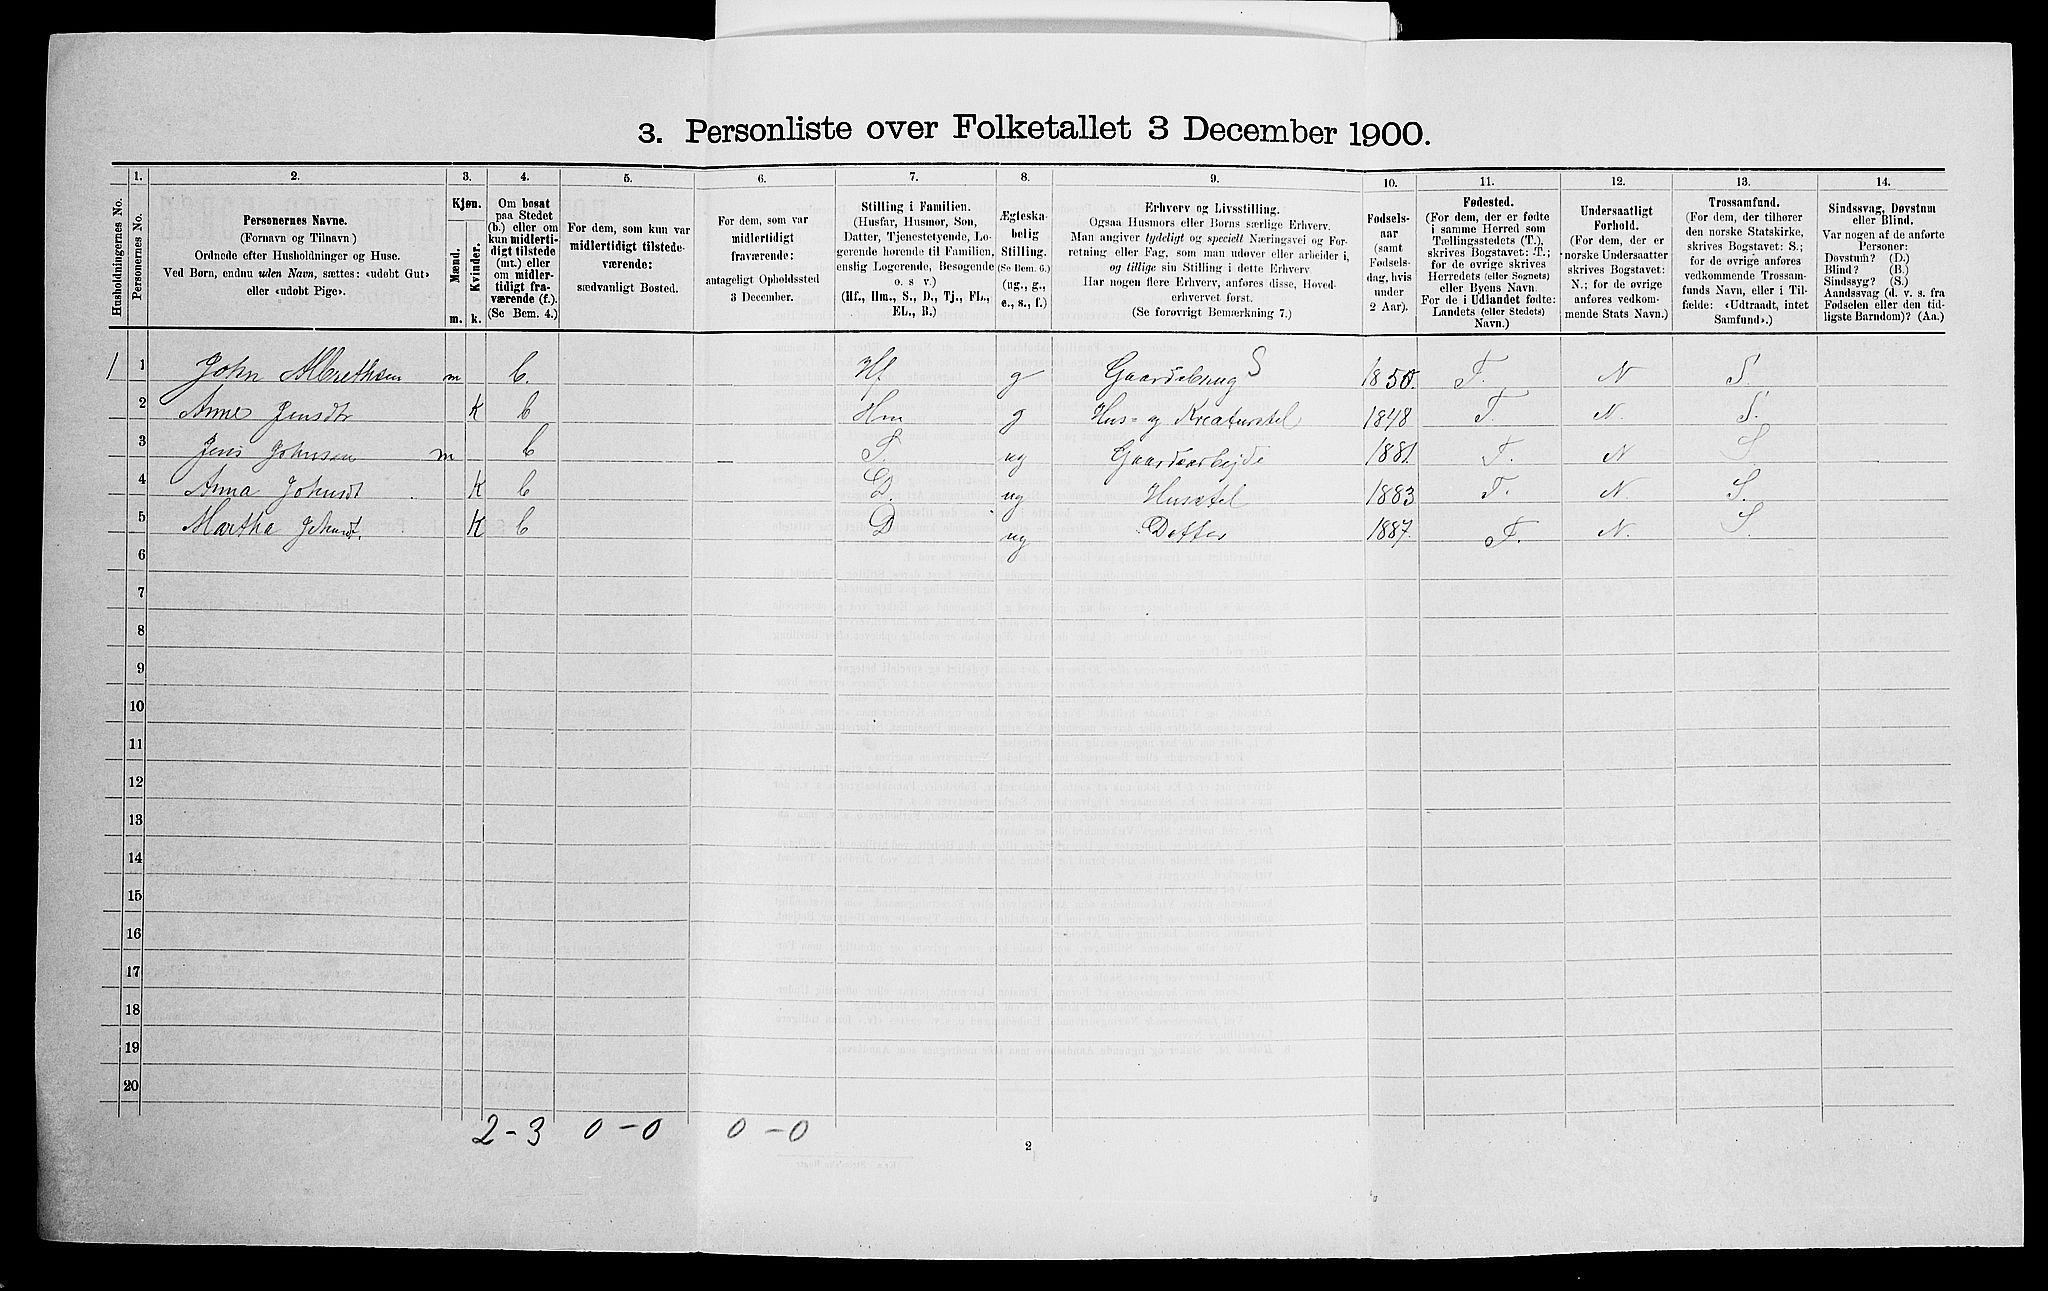 3. Personliste over Folketallet 3 December 1900.
Husholdningernes No.
1.
Personernes No.
2.
Personernes Navne.
(Fornavn og Tilnavn)
Ordnede efter Husholdninger og Huse.
Ved Børn, endnu uden Navn, sættes: «udøbt Gut»
eller «udøbt Pige».
3.
Kjøn.
Mænd.
Kvinder.
m. k.
4.
Om bosat
paa Stedet
(b.) eller om
kun midlerti-
digt tilstede
(mt.) eller
om midler-
tidigt fra-
værende (f.).
(Se Bem. 4.)
5.
For dem, som kun var
midlertidigt tilstede-
værende:
sædvanligt Bosted.
6.
For dem, som var
midlertidigt
fraværende:
antageligt Opholdssted
3 December.
7.
Stilling i Familien.
(Husfar, Husmor, Søn,
Datter, Tjenestetyende, Lo-
gerende hørende til Familien,
enslig Logerende, Besøgende
o. s v.)
(Hf., Hm., S., D., Tj., FL.,
EL., B.)
8.
Ægteska-
belig
Stilling.
(Se Bem. 6.)
(ug., g.,
e., s., f.)
9.
Erhverv og Livsstilling.
Ogsaa Husmors eller Børns særlige Erhverv.
Man angiver tydeligt og specielt Næringsvei og For-
retning eller Fag, som man udøver eller arbeider i,
og tillige sin Stilling i dette Erhverv
Har nogen flere Erhverv, anføres disse, Hoved-
erhvervet først.
(Se forøvrigt Bemærkning 7.)
10.
Fødsels-
aar
(samt
Fødsels-
dag, hvis
under
2 Aar).
11.
Fødested.
(For dem, der er fødte
i samme Herred som
Tællingsstedets (T.),
skrives Bogstavet: T.;
for de øvrige skrives
Herredets (eller Sognets)
eller Byens Navn.
For de i Udlandet fødte:
Landets (eller Stedets)
Navn.)
12.
Undersaatligt
Forhold.
(For de, der er
norske Undersaatter
skrives Bogstavet:
N.; for de øvrige
anføres vedkom-
mende Stats Navn.)
13.
Trossamfund.
(For dem, der tilhører
den norske Statskirke,
skrives Bogstavet: S.;
for de øvrige anføres
vedkommende Trossam-
funds Navn, eller i Til-
fælde: «Udtraadt, intet
Samfund».)
14.
Sindssvag, Døvstum
eller Blind.
Var nogen af de anførte
Personer:
Døvstum? (D.)
Blind? (B.)
Sindssyg? (S.)
Aandssvag (d. v. s. fra
Fødselen eller den tid-
ligste Barndom)? (Aa.)
1 1 John Albrethsen m b. Hf. g Gaardsbrug S 1850. T. N S.
2 Anne Jensdtr K b Hm g Hus- og Kreaturstel 1848 T. N. S.
3 Jens Johnsen m b S. ug Gaardsarbejde 1881. T. N S
4 Anna Johnsdt K b D. ug Husstel 1883 T. N. S.
5 Martha Johnsdt. K b D ug Datter 1887. T. N. S.
6
7
8
9
10
11
12
13
14
15
16
17
18
19
20
2-3 0-0 0-0
2